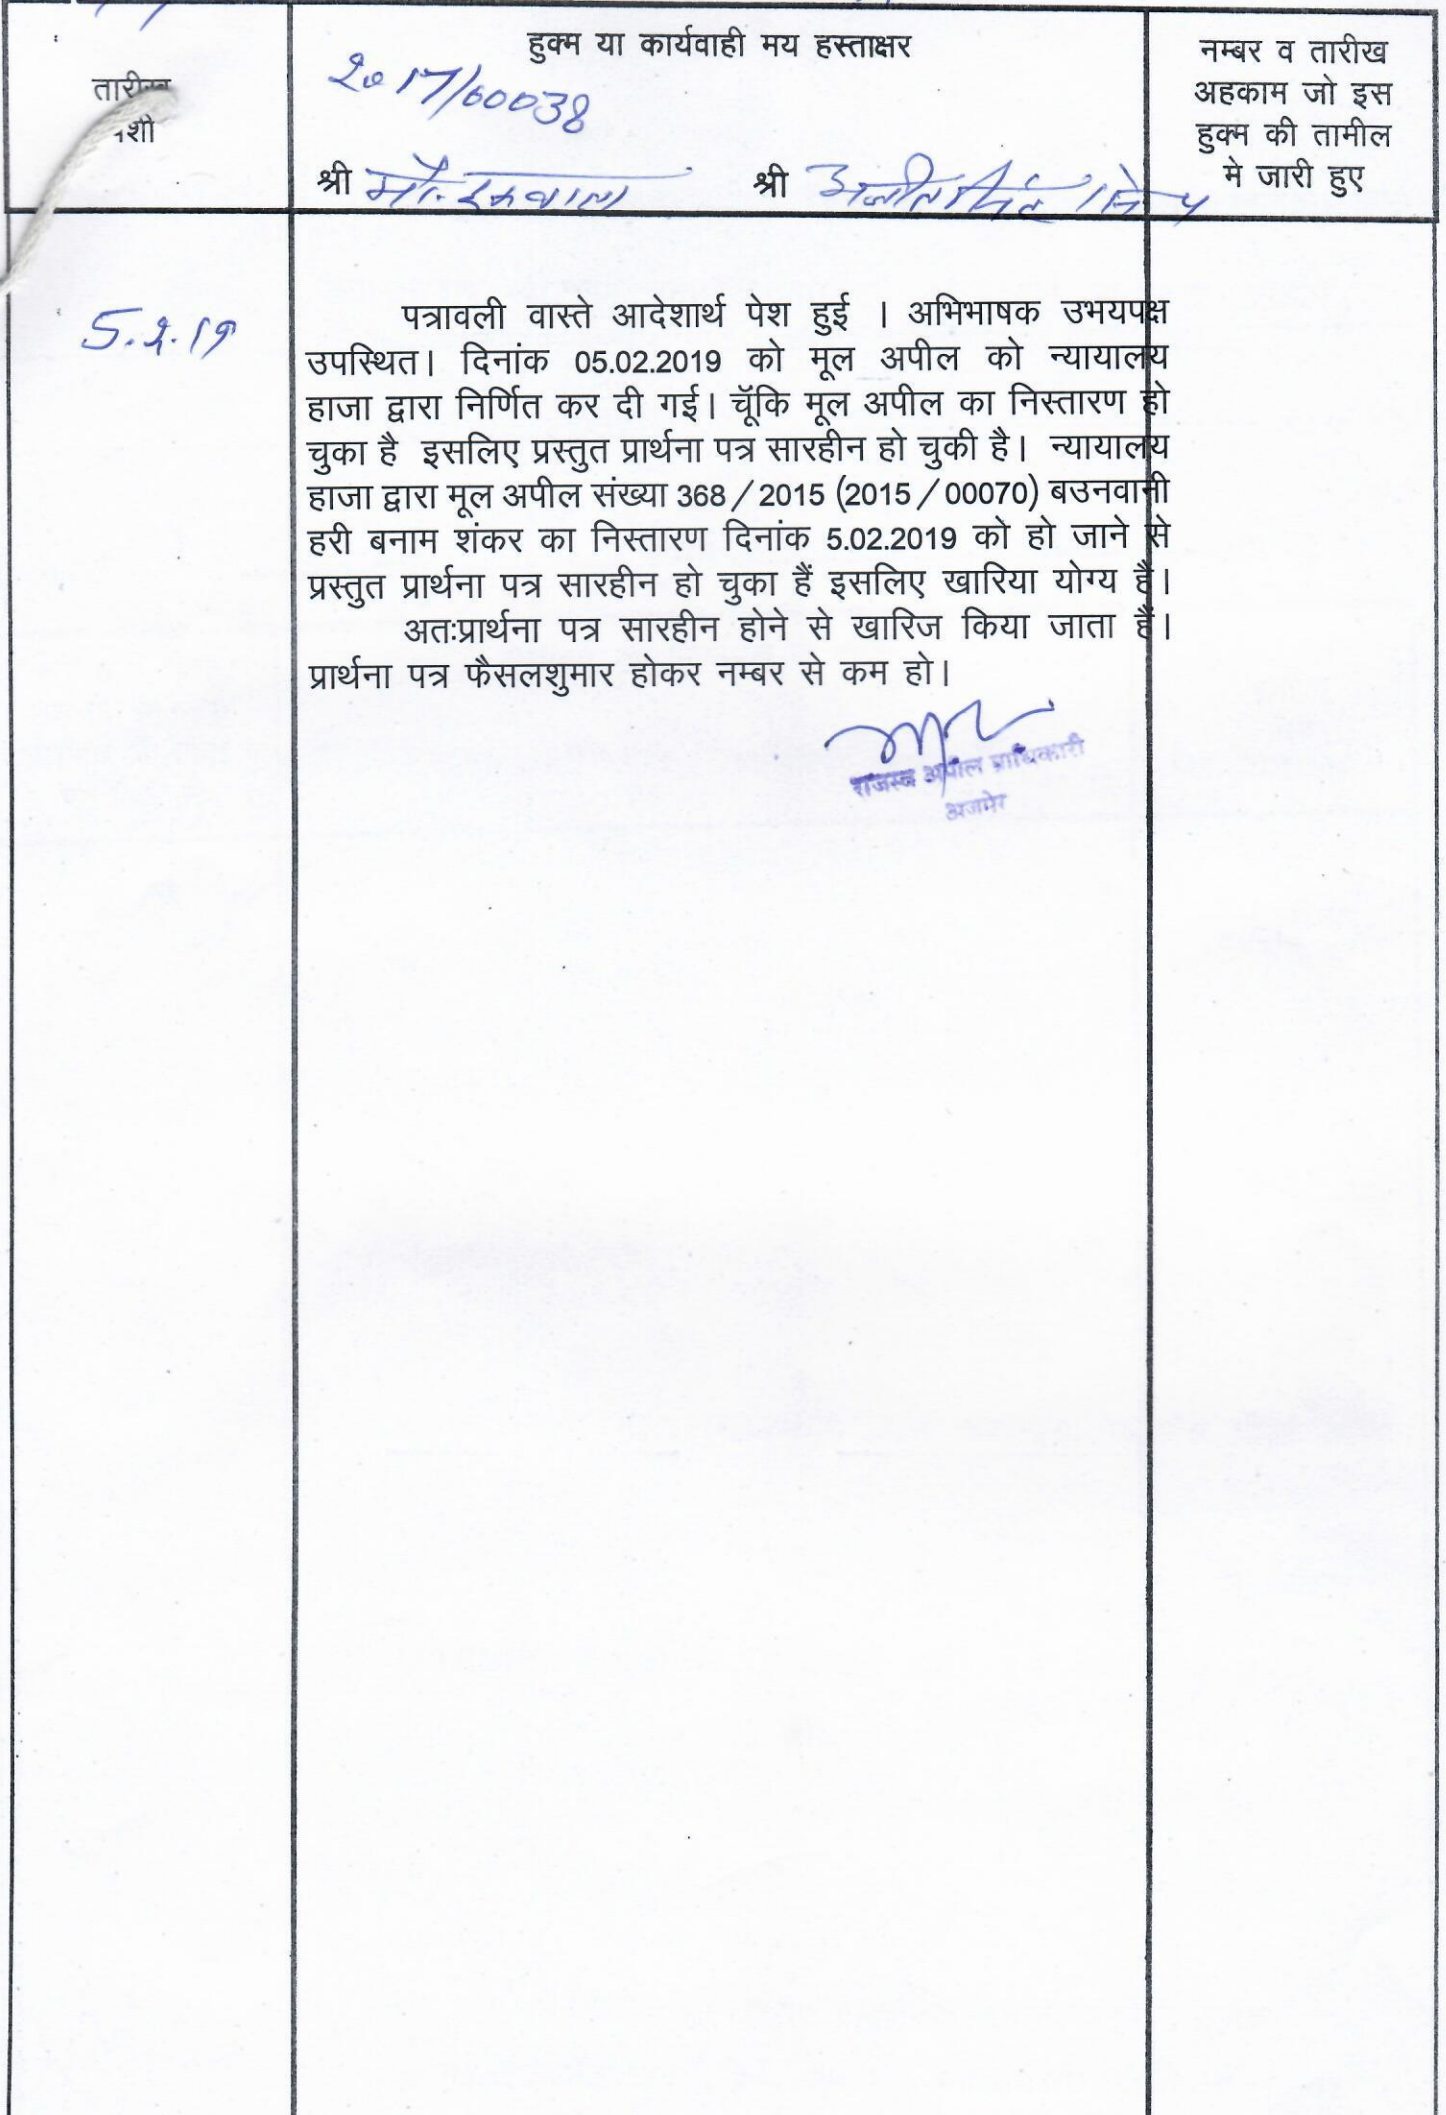 तारीख
पेशी
हुक्म या कार्यवाही मय हस्ताक्षर
2017/00038
श्री
श्री
नम्बर व तारीख
अहकाम जो इस
हुक्म की तामील
मे जारी हुए
5.2.19
पत्रावली वास्ते आदेशार्थ पेश हुई । अभिभाषक उभयपक्ष
उपस्थित। दिनांक 05.02.2019 को मूल अपील को न्यायालय
हाजा द्वारा निर्णित कर दी गई। चूॅकि मूल अपील का निस्तारण हो
चुका है इसलिए प्रस्तुत प्रार्थना पत्र सारहीन हो चुकी है। न्यायालय
हाजा द्वारा मूल अपील संख्या 368/2015 (2015/00070) बउनवानी
हरी बनाम शंकर का निस्तारण दिनांक 5.02.2019 को हो जाने से
प्रस्तुत प्रार्थना पत्र सारहीन हो चुका हैं इसलिए खारिया योग्य है।
अतःप्रार्थना पत्र सारहीन होने से खारिज किया जाता हैं।
प्रार्थना पत्र फैसलशुमार होकर नम्बर से कम हो।
राजस्व अपील प्राधिकारी
अजमेर